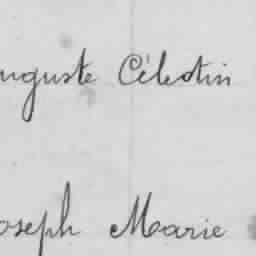 uguste Célestin
oseph Marie